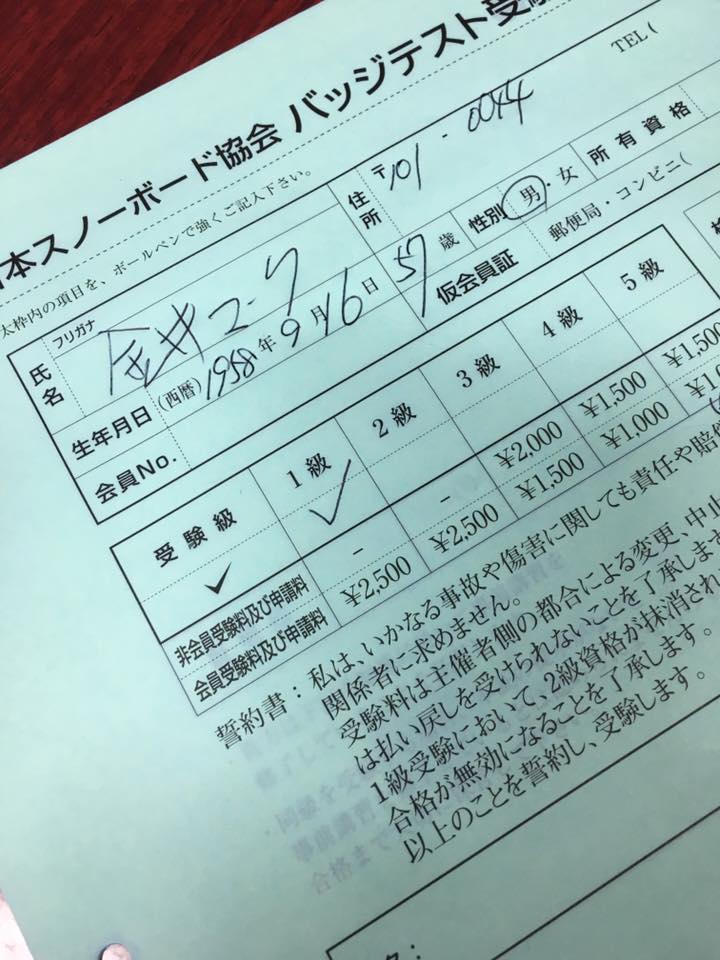 本スノーボード協会 バッジテスト受験
太枠内の項目を、ボールペンで強くご記入下さい。
TEL (
フリガナ
氏名 金井
住所 〒101-0044
生年月日 (西暦) 1958年 9月 16日 57歳 性別 男・女 所有資格
会員No. 仮会員証 郵便局・コンビニ(
受験級 1級 2級 3級 4級 5級
✓ ✓
非会員受験料及び申請料 - - ¥2,000 ¥1,500 ¥1,50
会員受験料及び申請料 ¥2,500 ¥2,500 ¥1,500 ¥1,000
誓約書：私は、いかなる事故や傷害に関しても責任や賠償
関係者に求めません。
受験料は主催者側の都合による変更、中止
は払い戻しを受けられないことを了承しま
1級受験において、2級資格が抹消され
合格が無効になることを了承します。
以上のことを誓約し、受験します。
名：